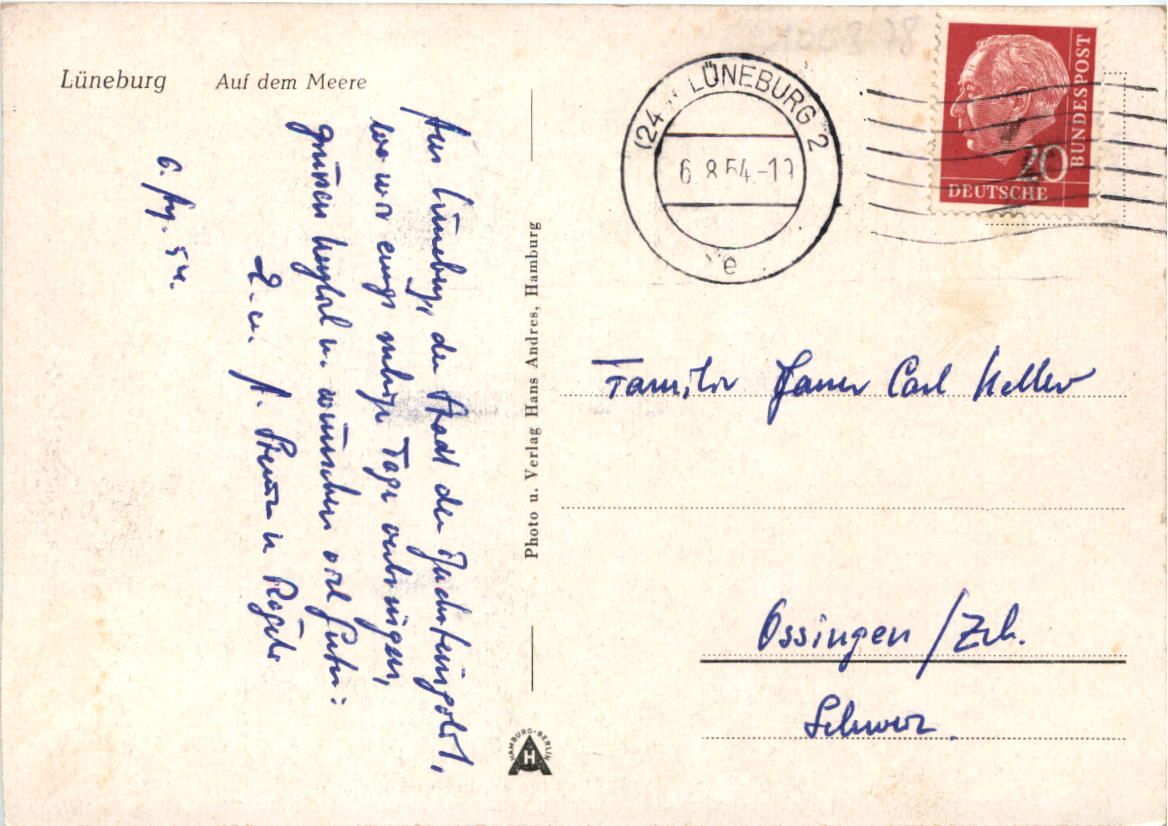 Lüneburg Auf dem Meere
Aus Lüneburg, der Stadt der Backsteingotik,
wo wir einige ruhige Tage verbringen,
grüssen herzlich u. wünschen viel Gutes:
u. A. u.
6. Aug. 54.
Photo u. Verlag Hans Andres, Hamburg
HAMBURG-BERLIN
H
A
(24 LÜNEBURG 2
6.8.54.-19
e
20
DEUTSCHE
BUNDESPOST
Familie Carl Keller
Ossingen /Zch.
Schweiz.